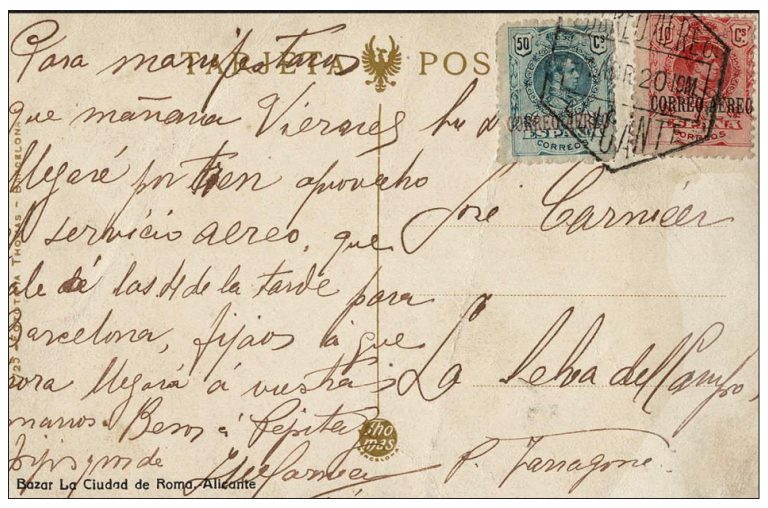 TARJETA POS
Para manifestaros
que mañana Viernes
llegaré por tren aprovecho
servicio aereo, que
ale de las 4 de la tarde para
Barcelona, fijaos á que
ora llegará á vuestras
manos. Besos á Pepita
50 Cs
CORREO AEREO
CORREOS
10 Cs
CORREO AEREO
CORREOS
CORREO AEREO
20
José Carnicer
La Selva del Campo
P. Tarragona
Thomas
BARCELONA
THOMAS - BARCELON
Bazar La Ciudad de Roma, Alicante